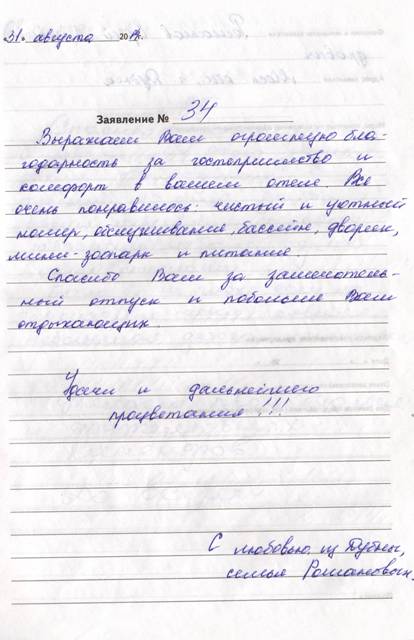 «31» августа 201 г.
Заявление № 34
Выражаем Вам огромную бла-
годарность за гостеприимство и
комфорт в вашем отеле. Все
очень понравилось: чистый и уютный
номер, обслуживание, бассейн, дворик,
мини-зоопарк и питание.
Спасибо Вам за замечатель-
ный отпуск и побольше Вам
отдыхающих.
Удачи и дальнейшего
процветания!!!
С любовью из Дубны,
семья Романовых.